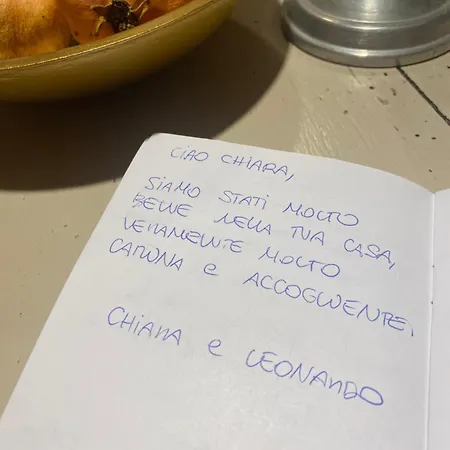 CIAO CHIARA,
SIAMO STATI MOLTO
BENE NELLA TUA CASA,
VERAMENTE MOLTO
CARINA e ACCOGLIENTE.
CHIARA e LEONARDO